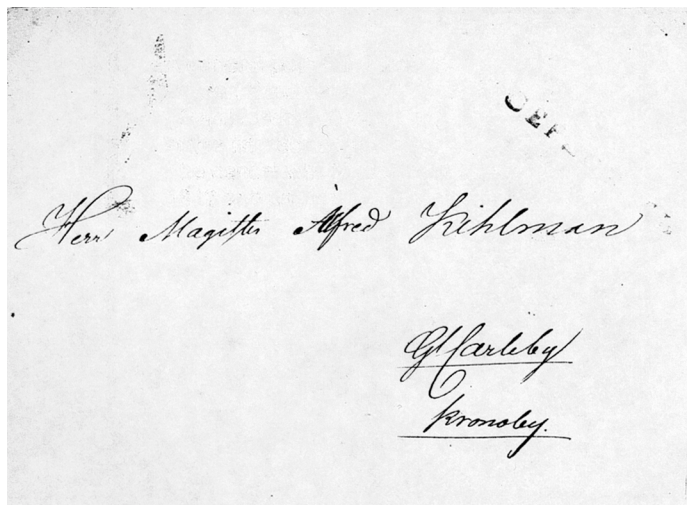 Herr Magister Alfred Kihlman
Gl Carleby
Kronoby.